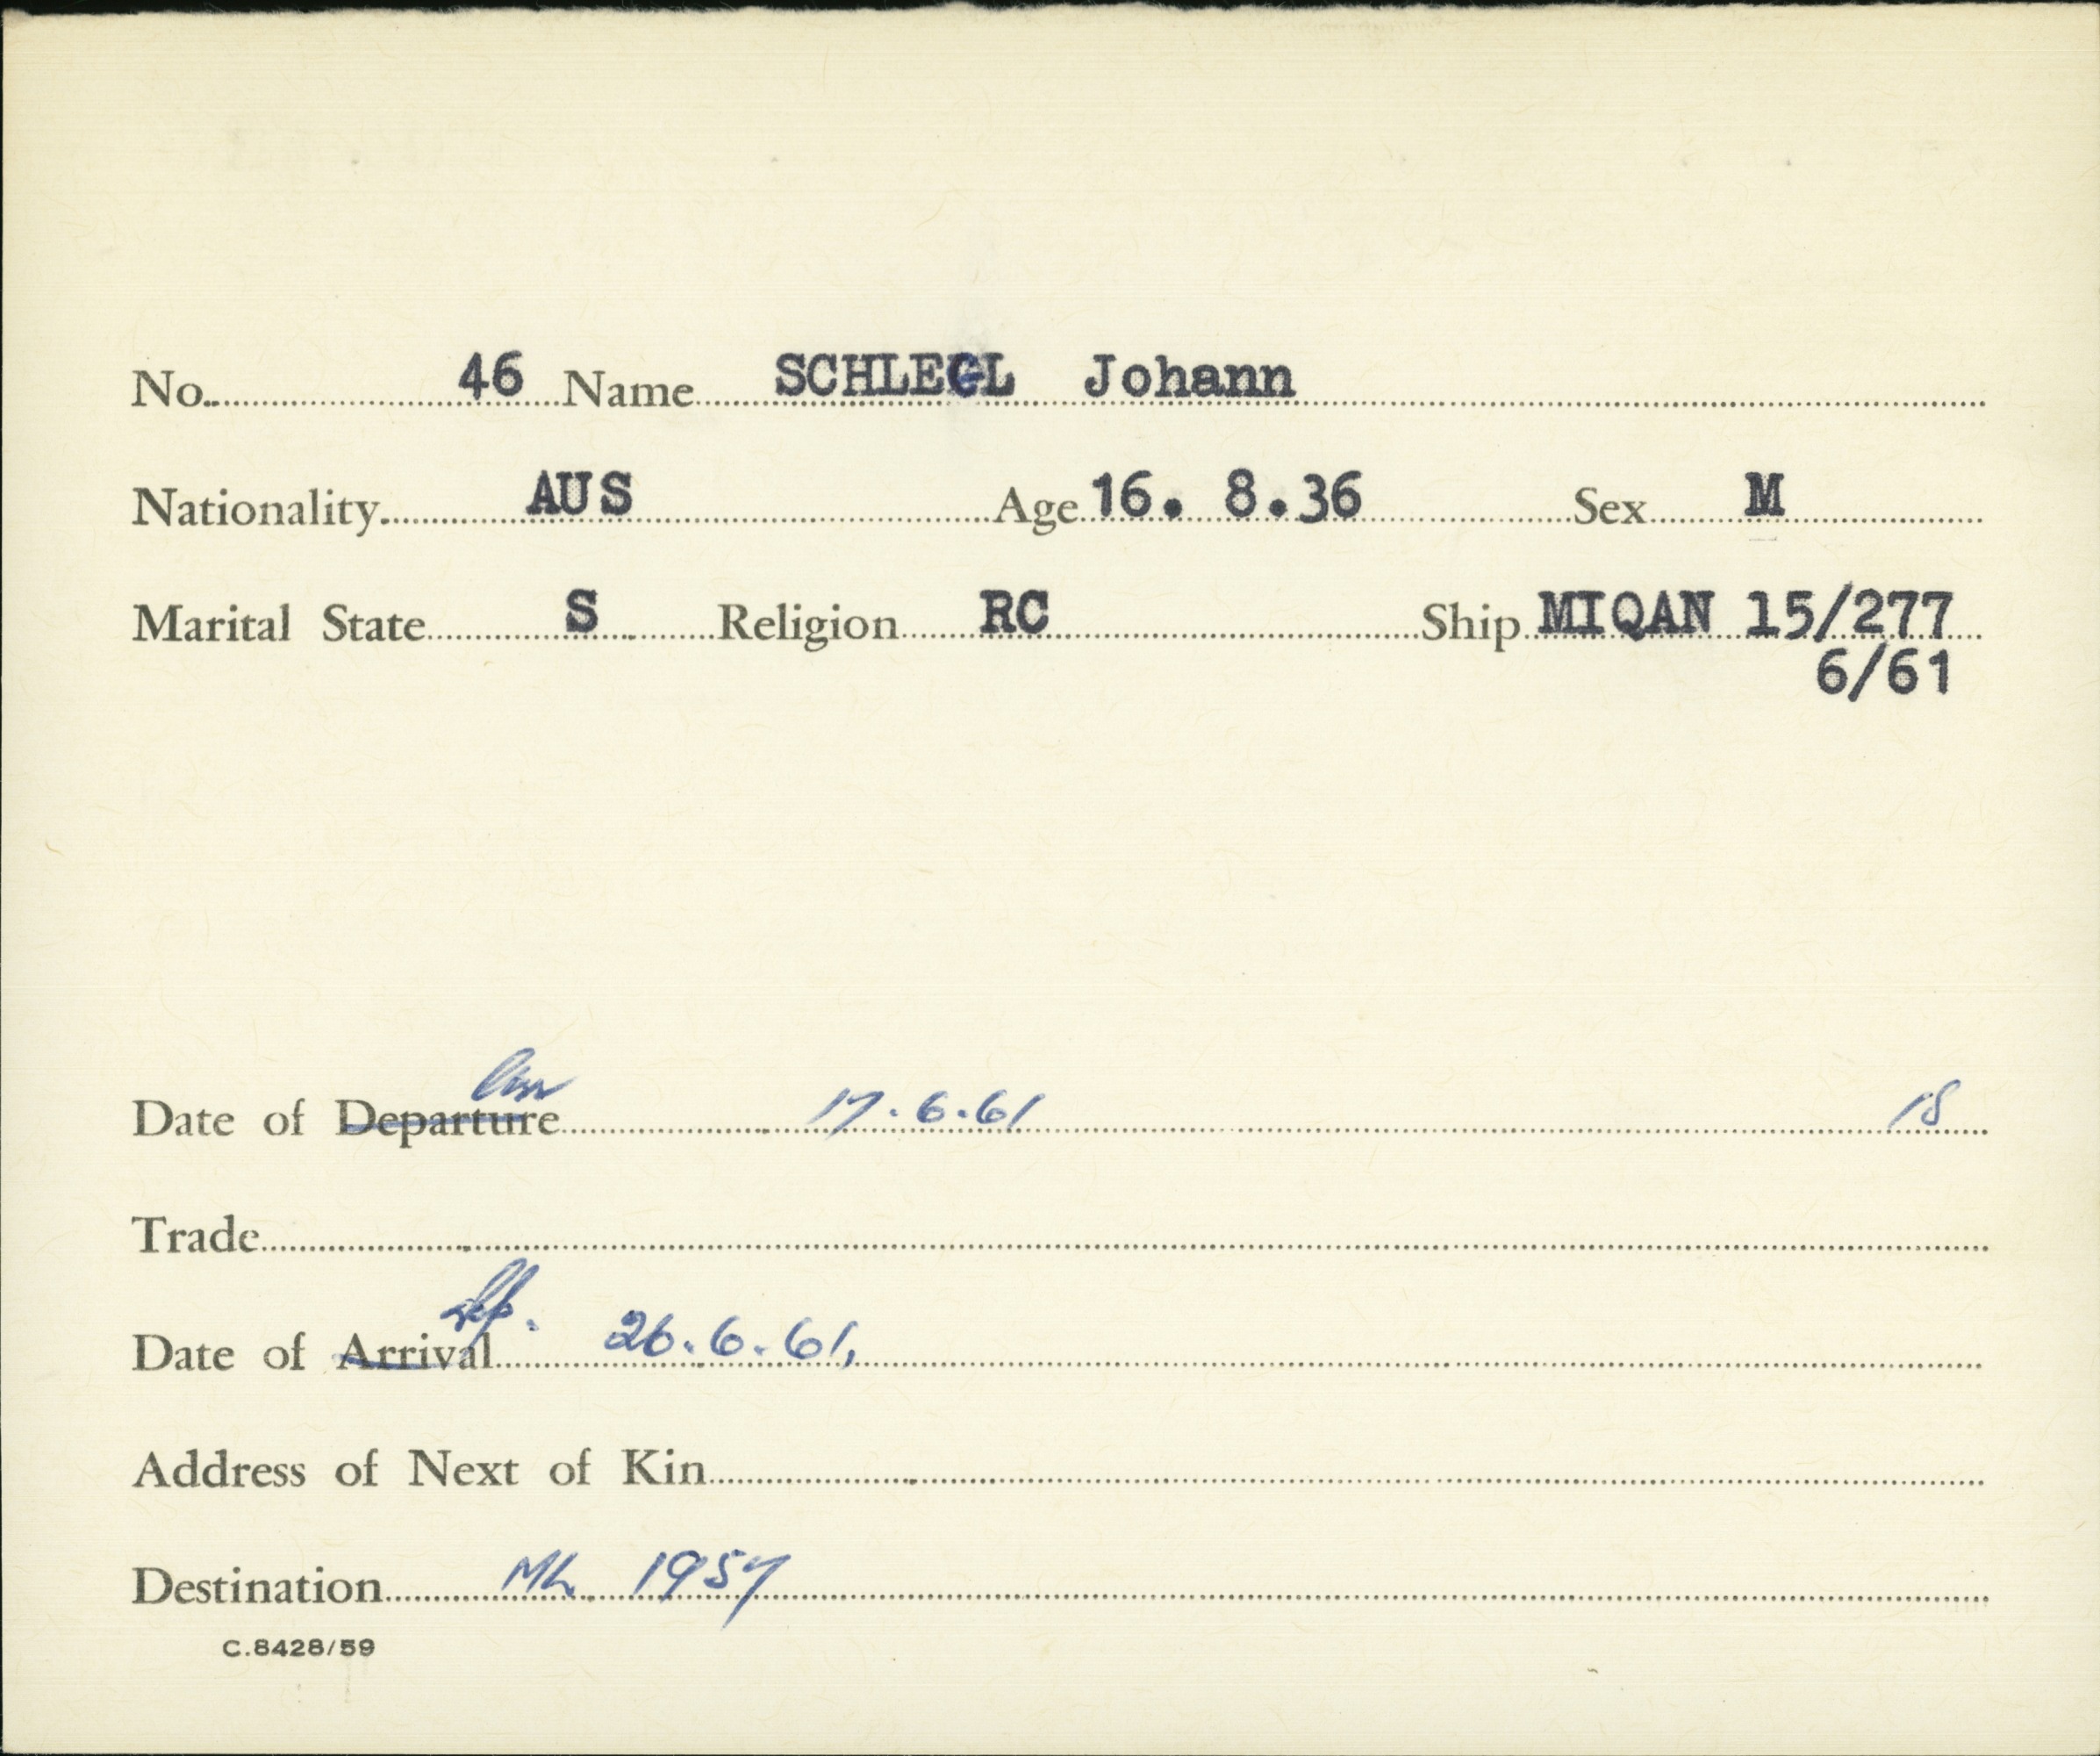 No. 46 Name SCHLEGL Johann
Nationality AUS Age 16. 8.36 Sex M
Marital State S Religion RC Ship MIQAN 15/277
6/61
Arr
Date of Departure 17.6.61 18
Trade
Dep.
Date of Arrival 26.6.61,
Address of Next of Kin
Destination 1957
C.8428/59